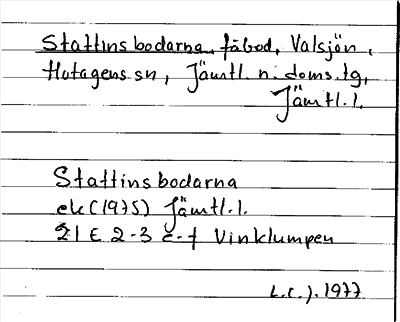 Stattinsbodarna, fäbod, Valsjön,
Hotagens sn, Jämtl. n. doms.tg,
Jämtl. l.
Stattinsbodarna
ek (1975) Jämtl. l.
21 E 2-3 e-f Vinklumpen
L.C.J. 1977